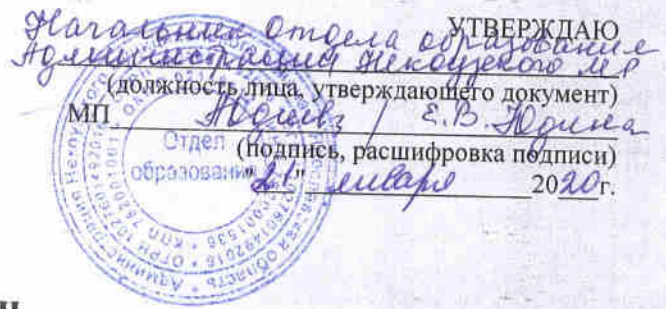 УТВЕРЖДАЮ
Начальник Отдела образования
Администрации Некоузского МР
(должность лица, утверждающего документ)
МП / Е.В. Юдина
(подпись, расшифровка подписи)
"21" января 2020г.
Отдел
образования